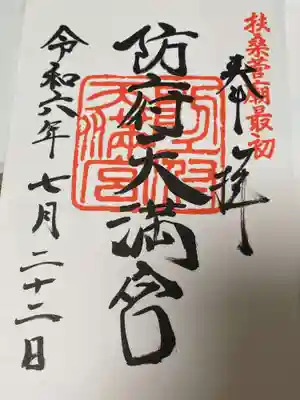 扶桑菅廟最初
奉拝
防府天満宮
防府天満宮
令和六年七月二十二日